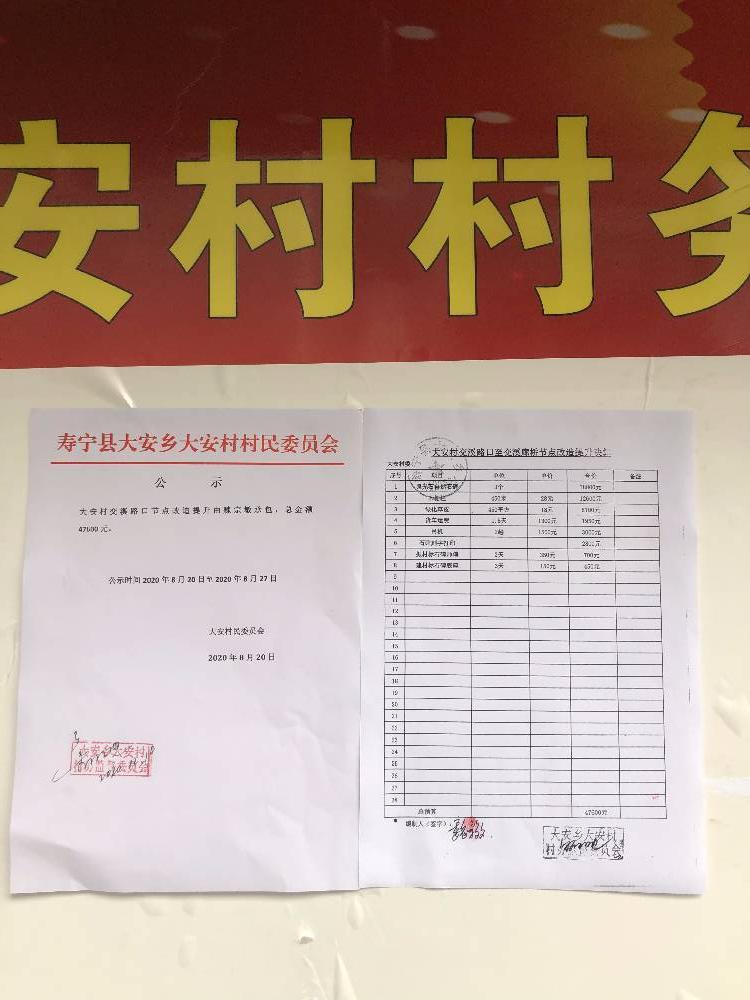 安村村务
寿宁县大安乡大安村村民委员会
公 示
大安村交溪路口节点改造提升由魏宗敏承包，总金额
47600元。
公示时间2020年8月20日至2020年8月27日
大安村民委员会
2020年8月20日
大安乡大安村
村务监督委员会
大安村交溪路口至交溪廊桥节点改造提升
大安村委
序号 项目 单位 单价 合价 备注
1 1个
2 450米 28元 12600元
3 绿化草皮 450平方 18元 8100元
4 货车运费 1.5天 1300元 1950元
5 吊机 2趟 1500元 3000元
6 石碑刻字打印 2800元
7 2天 350元 700元
8 3天 150元 450元
9
10
11
12
13
14
15
16
17
18
19
20
21
22
23
24
25
26
27
28
总预算 47600元
编制人（签字）：
大安乡大安村
村务监督委员会